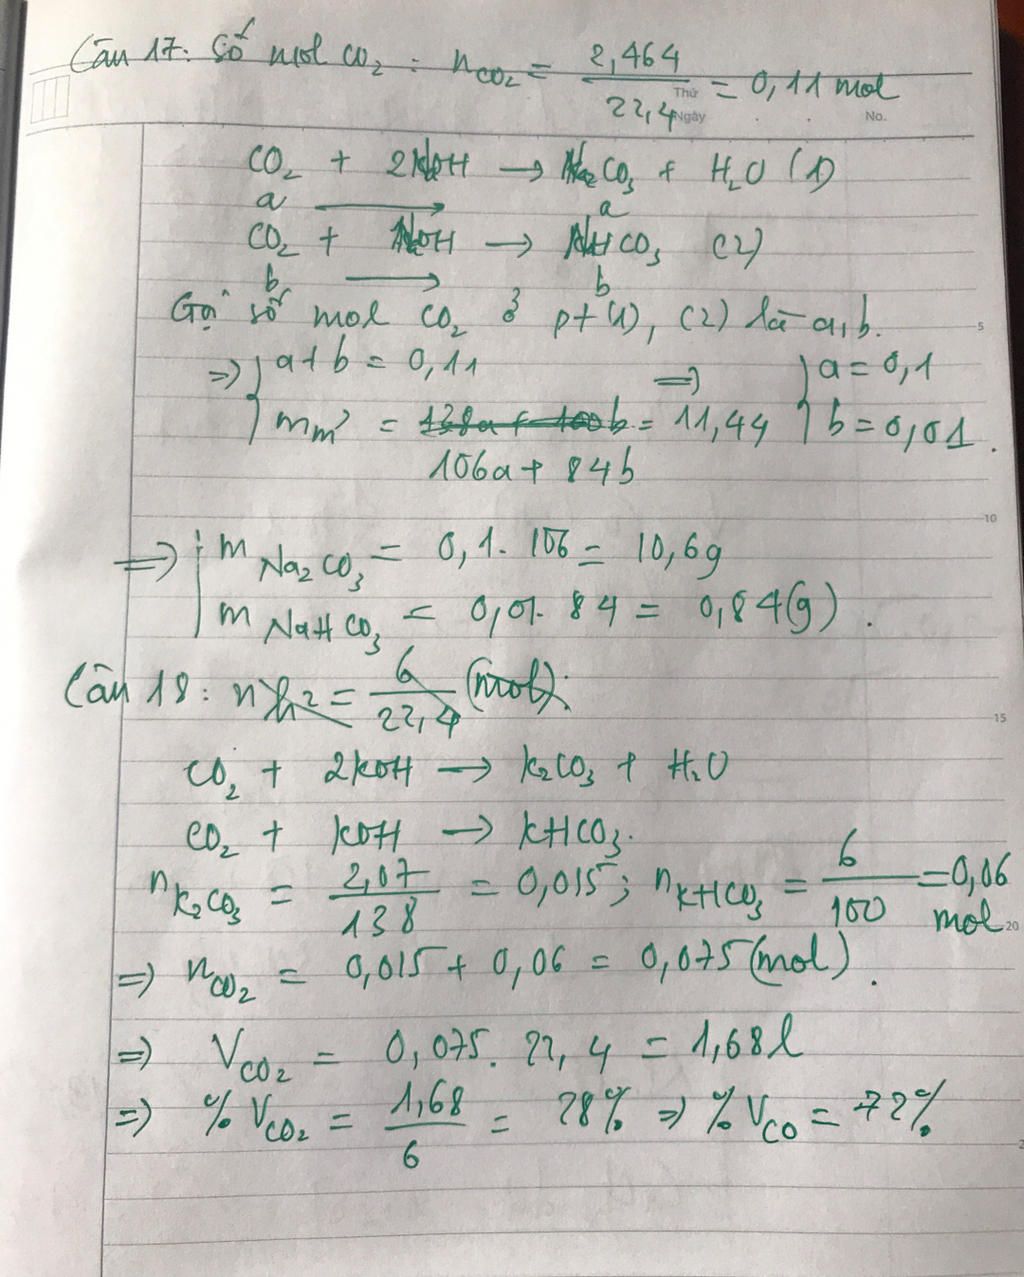 Câu 17: Số mol CO₂ : nCO₂ = 2,464 / 22,4 = 0,11 mol
Thứ
Ngày No.
CO₂ + 2NaOH → Na₂CO₃ + H₂O (1)
a → a
CO₂ + NaOH → NaHCO₃ (2)
b → b
Gọi số mol CO₂ ở pt (1), (2) là a, b.
5
=> { a + b = 0,11 => { a = 0,1
mm' = 138a + 100b = 11,44 b = 0,01.
106a + 84b
10
=> { mNa₂CO₃ = 0,1. 106 = 10,6g
mNaHCO₃ = 0,01. 84 = 0,84(g).
Câu 18: nh² = 6 / 22,4 (mol).
15
CO₂ + 2KOH → K₂CO₃ + H₂O
CO₂ + KOH → KHCO₃.
nK₂CO₃ = 2,07 / 138 = 0,015; nKHCO₃ = 6 / 100 = 0,06 mol
20
=> nCO₂ = 0,015 + 0,06 = 0,075 (mol).
=> VCO₂ = 0,075. 22,4 = 1,68l
=> %VCO₂ = 1,68 / 6 = 28% => %VCO = 72%